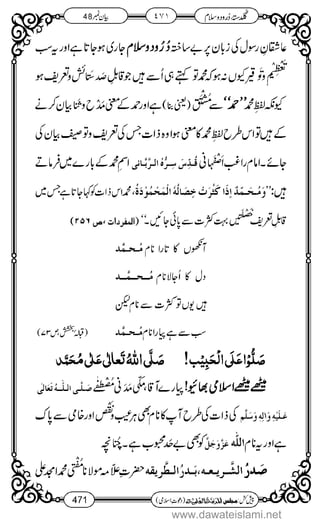 بیان نمبر 48 ٤٧١ گلدستۂ درود وسلام
عاشقانِ رسول کی زبان پر بے ساختہ دُرُود وسلام جاری ہوجاتا ہے اور یہ سب
تعظیم وتوقیر کیوں نہ ہو کہ محمد تو کہتے ہی اسے ہیں جو قابلِ صد ستائش وتعریف ہو
کیونکہ لفظِ محمد ’’حمد‘‘ سے مشتق (یعنی بنا) ہے اور حمد کے معنی مدح وثنا بیان کرنے
کے ہیں تو اس طرح لفظِ محمد کا معنی ہوا وہ ذات جس کی تعریف وتوصیف بیان کی
جائے۔ امام راغب اصفہانی قُدِّسَ سِرُّہُ الرَّبَّانِی اسمِ محمد کے بارے میں فرماتے
ہیں: ’’وَمُحَمَّدٌ اِذَا کَثُرَتْ خِصَالُہُ الْمَحْمُوْدَۃُ، محمد اس ذات کو کہا جاتا ہے جس میں
قابلِ تعریف خصلتیں بہت کثرت سے پائی جائیں۔‘‘ (المفردات، ص ٢٥٦)
آنکھوں کا تارا نامِ مُحمَّد
دل کا اُجالا نامِ مُحمَّد
ہیں یوں تو کثرت سے نام لیکن
سب سے ہے پیارا نامِ مُحمَّد (قبالۂ بخشش، ص ٧٣)
صَلُّوْا عَلَی الْحَبِیْب! صَلَّی اللّٰہُ تَعَالٰی عَلٰی مُحَمَّد
میٹھے میٹھے اسلامی بھائیو! پیارے آقا، مکی مدنی مصطفٰے صَلَّی اللّٰہُ تَعَالٰی
عَلَیْہِ وَاٰلِہٖ وَسَلَّم کی ذات کی طرح آپ کا نام بھی ہر عیب ونقص اور خامی سے پاک
ہے اور یہ نام اللّٰہ عَزَّوَجَلَّ کو بھی بے حد محبوب ہے۔ چنانچہ
صدرُ الشریعہ، بدرُ الطریقہ حضرتِ علامہ مولانا مفتی محمد امجد علی
471 پیش کش: مجلس المدینۃ العلمیۃ (دعوتِ اسلامی)
www.dawateislami.net